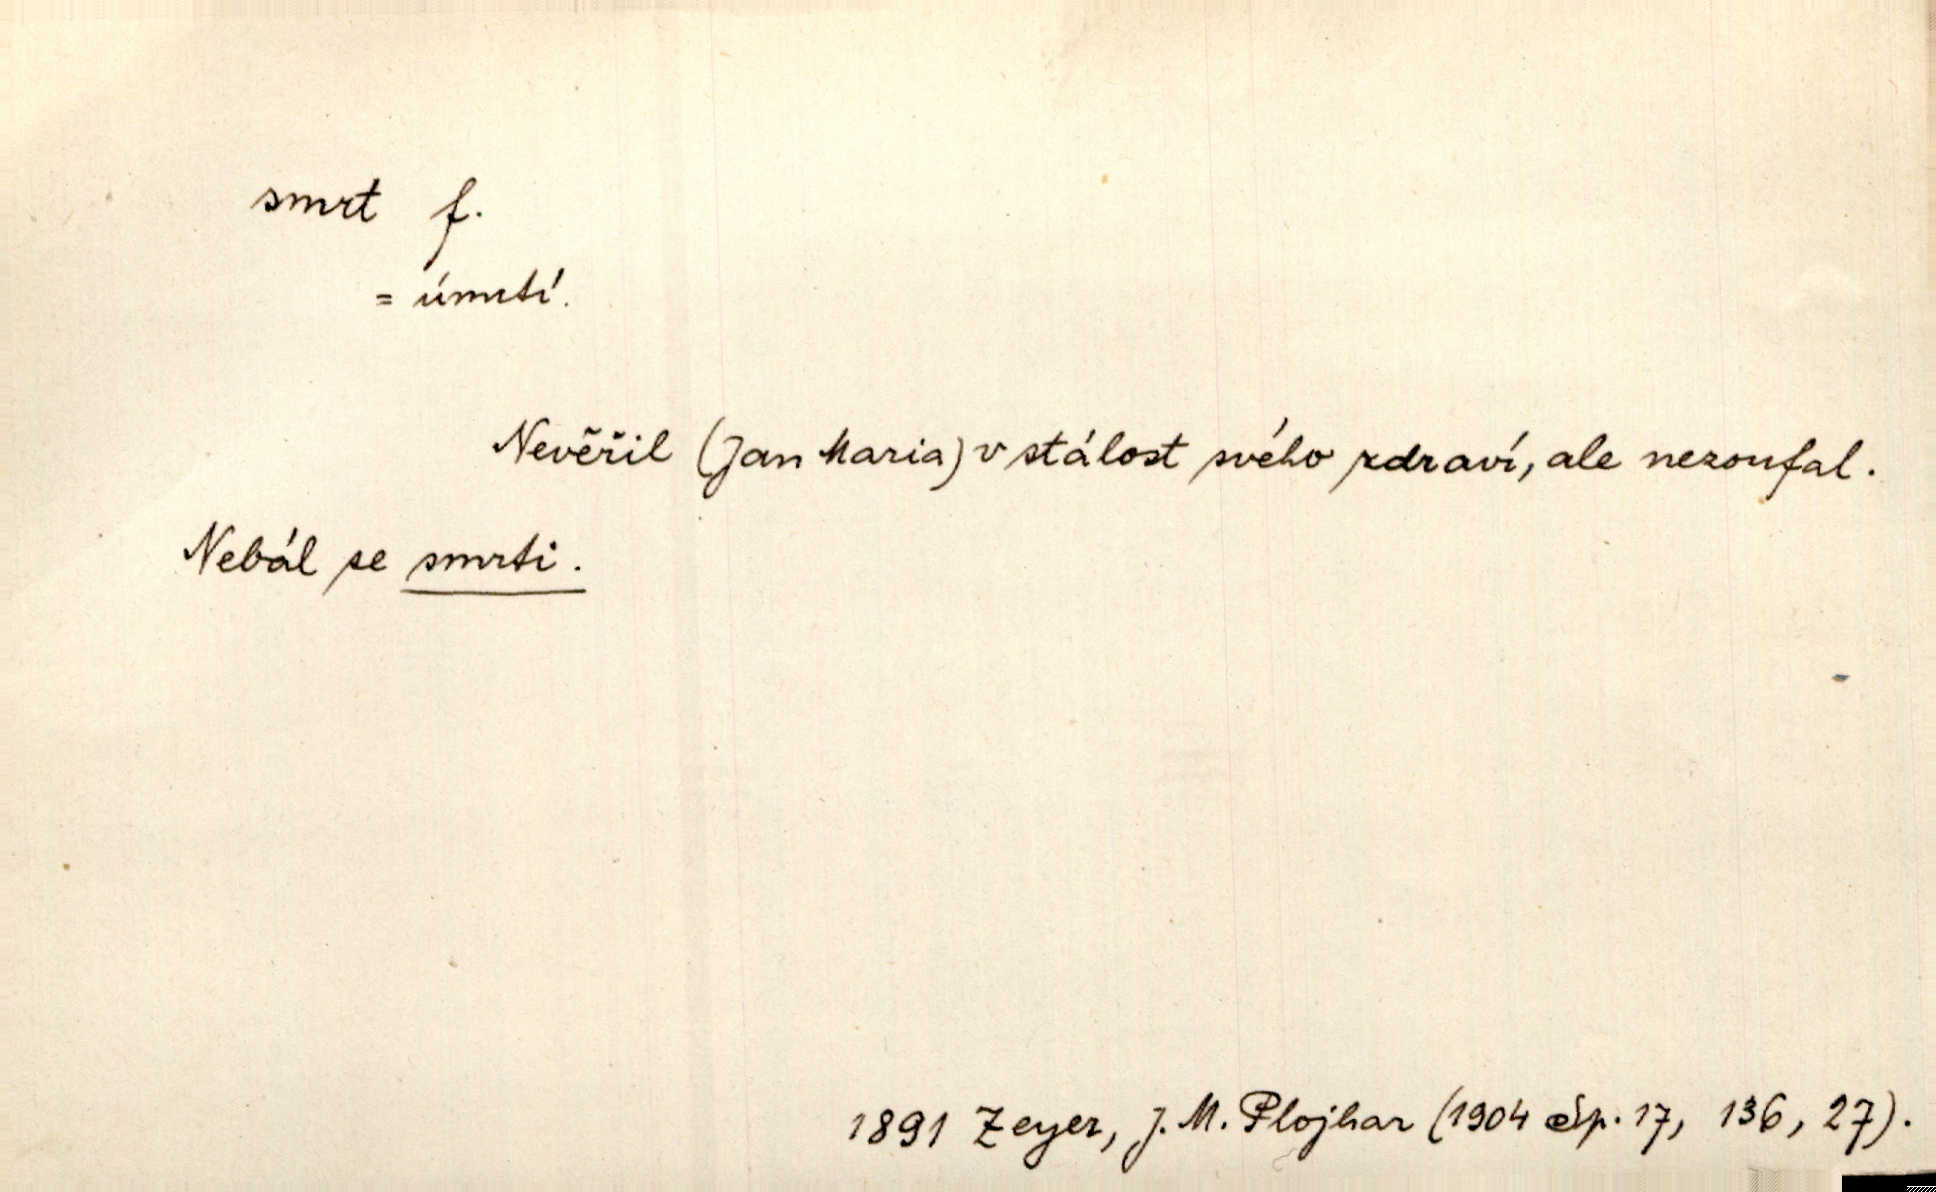 smrt f.
= úmrtí.
Nevěřil (Jan Maria) v stálost svého zdraví, ale nezoufal.
Nebál se smrti.
1891 Zeyer, J. M. Plojhar (1904 Sp. 17, 136, 27).